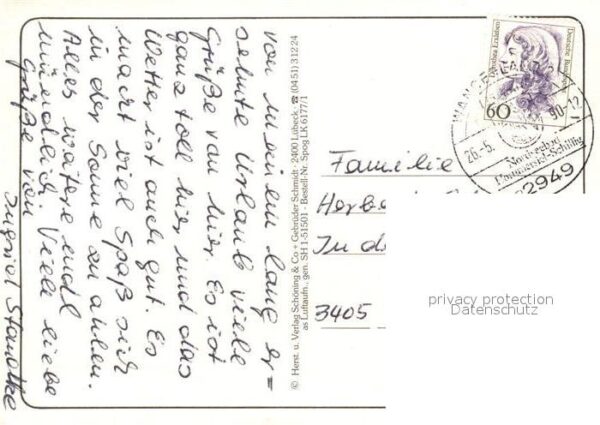 von unserem lang er=
sehnte Urlaub viele
Grüße von hier. Es ist
ganz toll hier und das
Wetter ist auch gut. Es
macht viel Spaß sich
in der Sonne zu ahlen.
Alles weitere
mündlich. Viele liebe
Grüße von
Ingrid
© Herst. u. Verlag Schöning & Co + Gebrüder Schmidt · 2400 Lübeck ☎ (0451) 31224
as Luftaufn., gen. SH 1-51501 · Bestell-Nr. Spog LK 6177/1
Dorothea Erxleben
Deutsche Bundespost
60
26.-5. 90-12
Nordseebad
Horumersiel-Schillig
2949
Familie
Herbe
In d
3405
privacy protection
Datenschutz